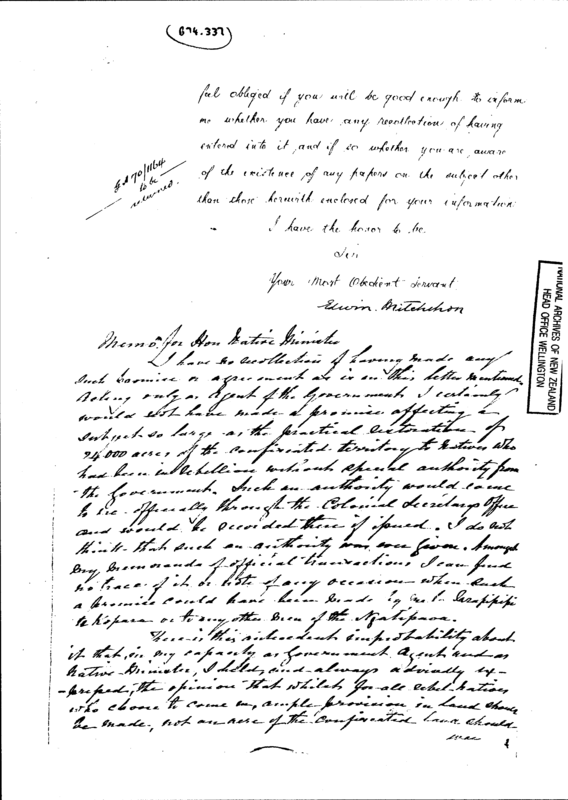 674.337
feel obliged if you will be good enough to inform
me whether you have any recollection of having
entered into it, and if so whether you are aware
of the existence of any papers on the subject other
than those herewith enclosed for your information
I have the honor to be
Sir
Your Most Obedient Servant
Edwin Mitchelson
70/1164
to be
returned.
NATIONAL ARCHIVES OF NEW ZEALAND
HEAD OFFICE WELLINGTON
Memo. for Hon Native Minister
I have no recollection of having made any
such promise or agreement as is in this letter mentioned.
Acting only as Agent of the Government I certainly
would not have made a promise affecting a
subject so large as the practical restoration of
74,000 acres of the confiscated territory to Natives who
had been in rebellion without special authority from
the Government. Such an authority would come
to me officially through the Colonial Secretary's Office
and would be recorded there if issued. I do not
think that such an authority was ever given. Amongst
my memoranda of official transactions I can find
no trace of it or note of any occasion when such
a promise could have been made by me to
or to any other men of the
There is this antecedent improbability about
it that, in my capacity as Government Agent and as
Native Minister, I held, and always advisedly ex-
-pressed, the opinion that whilst for all rebel Natives
who choose to come in, ample provision in land should
be made, not an acre of the confiscated land should